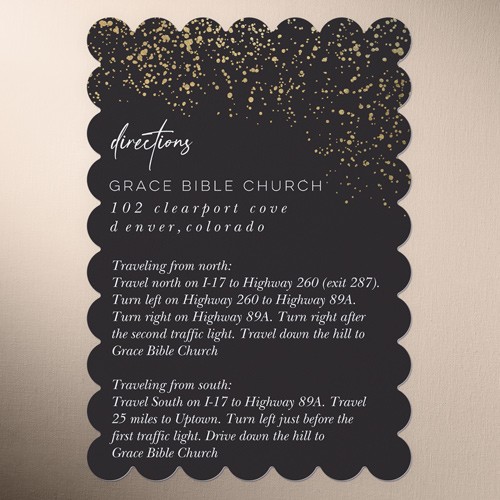 directions
GRACE BIBLE CHURCH
102 clearport cove
denver, colorado
Traveling from north:
Travel north on I-17 to Highway 260 (exit 287).
Turn left on Highway 260 to Highway 89A.
Turn right on Highway 89A. Turn right after
the second traffic light. Travel down the hill to
Grace Bible Church
Traveling from south:
Travel South on I-17 to Highway 89A. Travel
25 miles to Uptown. Turn left just before the
first traffic light. Drive down the hill to
Grace Bible Church